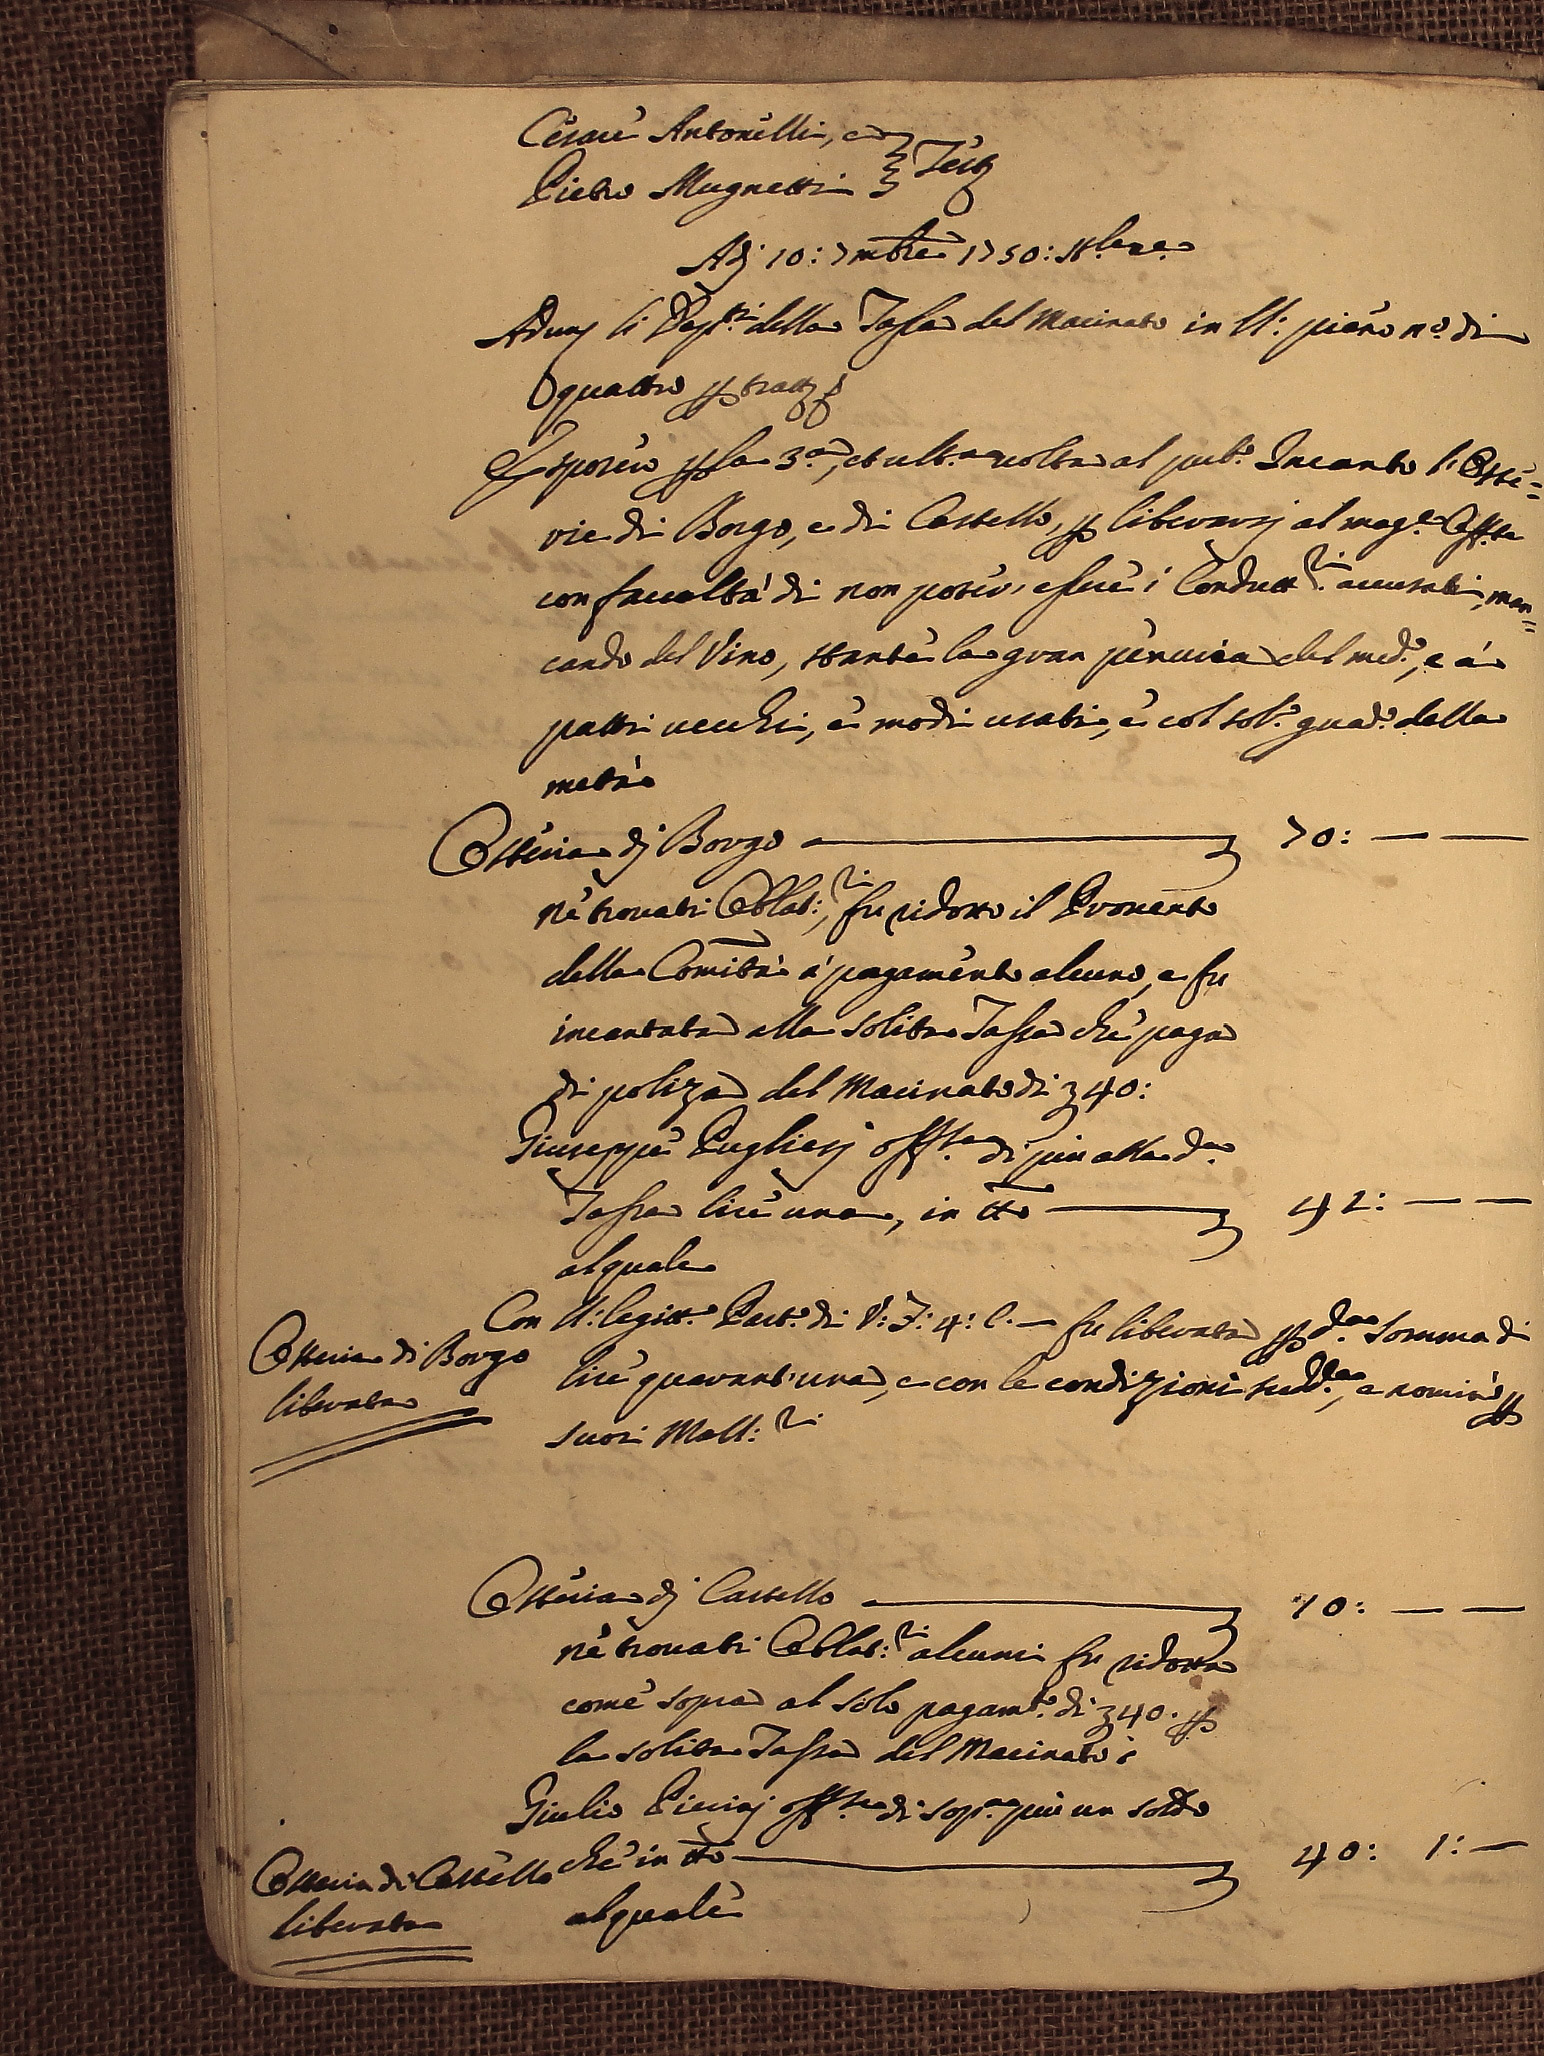 Cesare Antonelli, e
Pietro Mugnetti } Testj
Adj 10: 7mbre 1750:
Adunj li Depti della Tassa del Macinato in pieno no. di
quattro p trattj
Esposero p la 3a, et ulta. volta al pubo. Incanto l'Oste=
rie di Borgo, e di Castello, p liberarsj al magr. Offte
con facoltà di non poter' essere i Conduttri. accusati, man=
cando del Vino, stante la gran penuria del medo., e à
patti vecchi, e modi usati, e col solo. guado. della
metà
Osteria dj Borgo 70: — —
nè trovati Oblat:ri, fu ridotto il Provento
della Comità à pagamento alcuno, e fu
incantata alla solita Tassa che paga
di poliza del Macinato di 40:
Giuseppe Pugliesj offse di più alla da.
Tassa lire una, in tto 41: — —
al quale
Con legitto. Parto. di V: F: 4: C. — fu liberata p da. somma di
Osteria di Borgo
liberata
lire quarant'una, e con le condizioni sudde., e nominò p
suoi Mall:ri
Osteria dj Castello 70: — —
nè trovati Oblat:ri alcuni fu ridotta
come sopra al solo pagamto. di 40. p
la solita Tassa del Macinato:
Giulio Ricciaj offse di sopa. più un soldo
che in tto 40: 1: —
Osteria di Castello
liberata
al quale